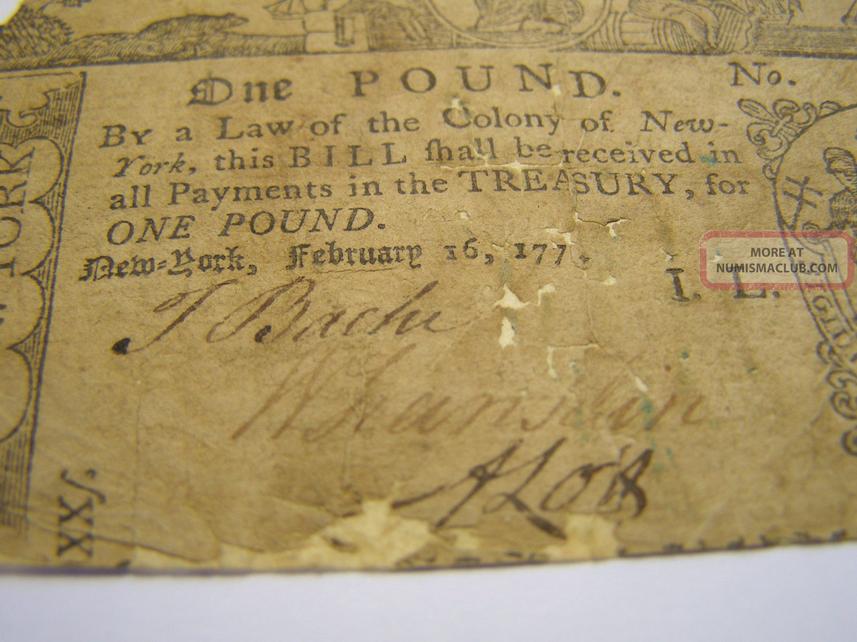 One POUND. No.
By a Law of the Colony of New-
York, this BILL ſhall be received in
all Payments in the TREASURY, for
ONE POUND.
New-York, February 16, 177
I. L.
T Bache
A Lott
YORK
XXſ.
MORE AT
NUMISMACLUB.COM